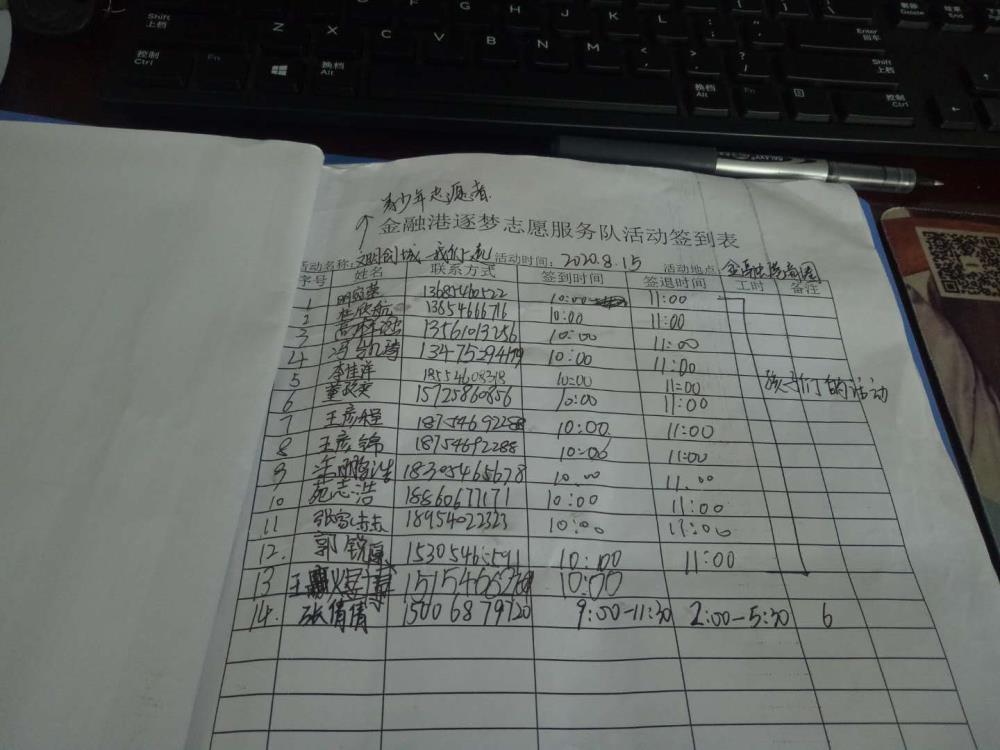 Shift 上档 Z X C V B N M Enter 回车
控制 Ctrl Fn 换档 Alt 换档 Alt Fn 控制 Ctrl Shift 上档
Delete End
青少年志愿者
金融港逐梦志愿服务队活动签到表
活动名称: 文明创城 我们一起 活动时间: 2020.8.15 活动地点:
序号 姓名 联系方式 签到时间 签退时间 工时 备注
1 13685460522 10:00 11:00
2 杜欣航 13654666716 10:00 11:00
3 13561013256 10:00 11:00
4 10:00 11:00
5 李佳洋 18554608318 10:00 11:00 孩子们的活动
6 15725860856 10:00 11:00
7 王彦程 18754692288 10:00 11:00
8 王彦锦 18754692288 10:00 11:00
9 18305465678 10:00 11:00
10 苑志浩 18860677171 10:00 11:00
11 18954022323 10:00 11:00
12. 郭锐 10:00 11:00
13 王 10:00
14. 张倩倩 15006879720 9:00-11:30 2:00-5:30 6